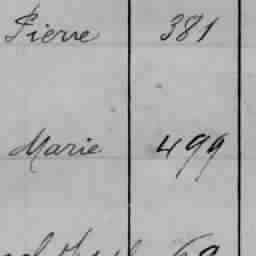 Pierre 381
Marie 499